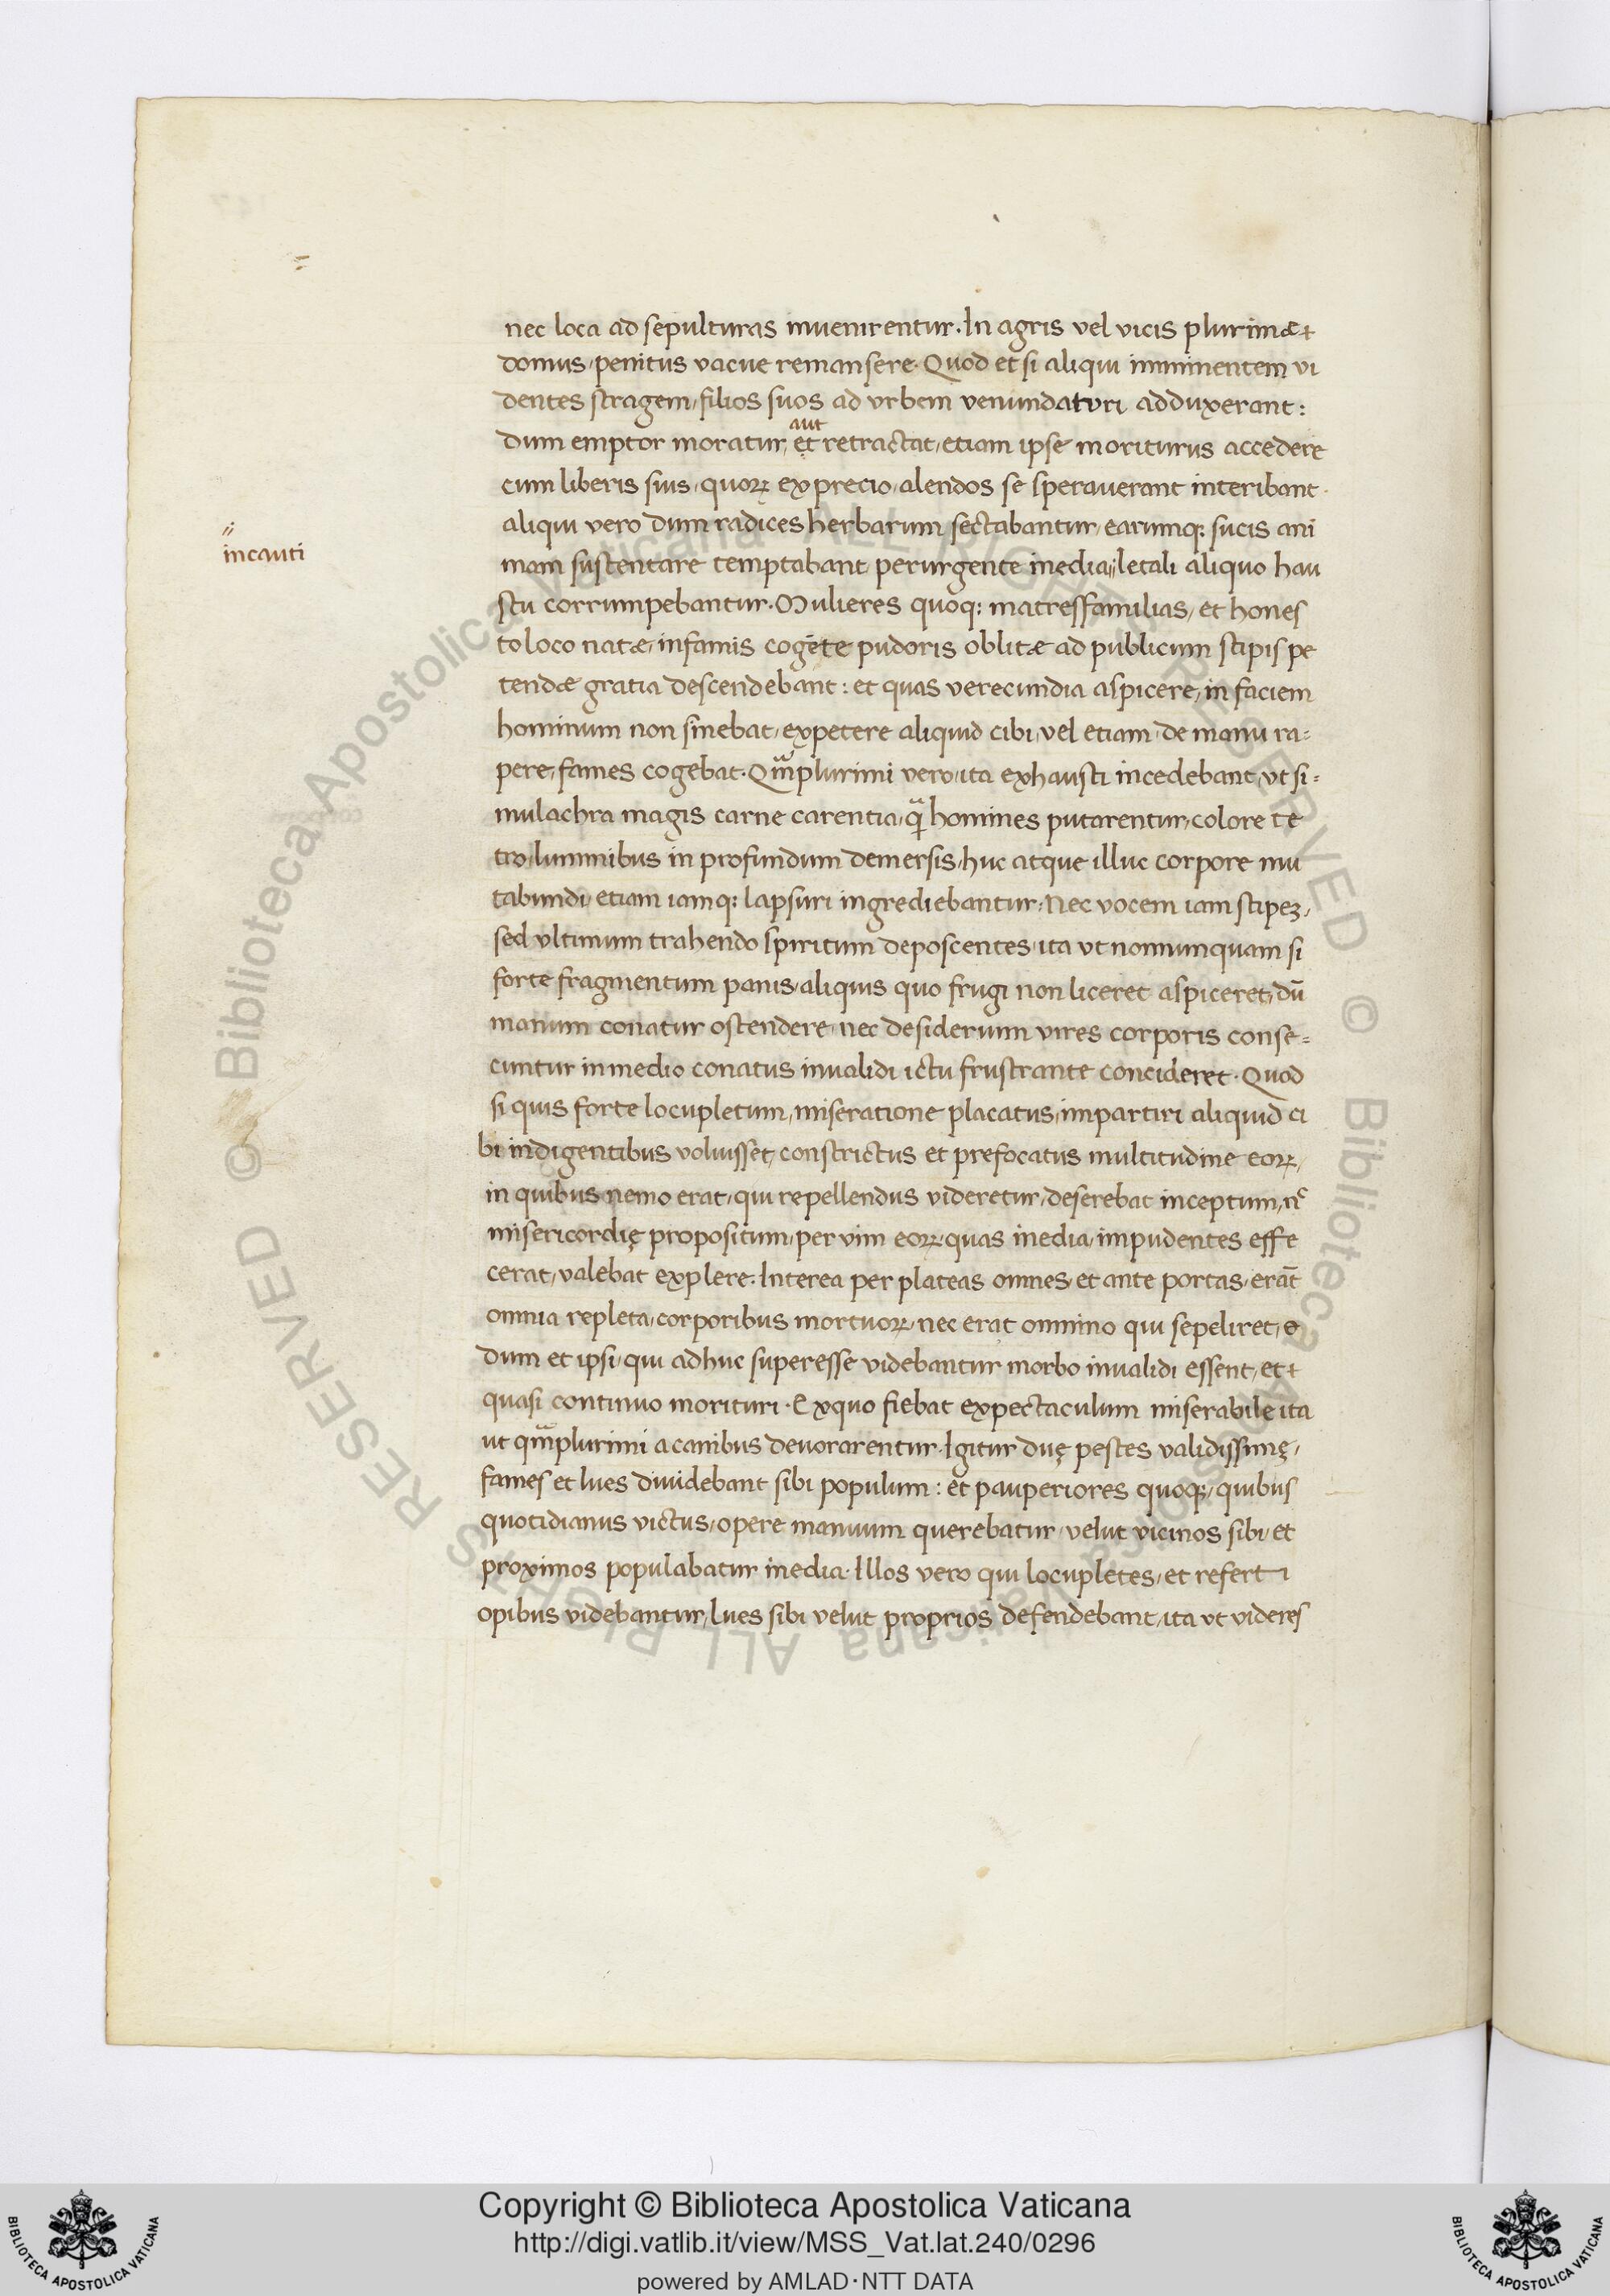 nec loca ad sepulturas inuenirentur. In agris vel vicis plurimæ
domus, penitus vacue remansere. Quod et si aliqui imminentem vi
dentes stragem, filios suos ad vrbem venundaturi adduxerant:
aut
dum emptor moratur, et retractat, etiam ipse moriturus accedere
cum liberis suis, quoꝝ ex precio, alendos se sperauerant interibant.
aliqui vero dum radices herbarum sectabantur, earumq: sucis ani
incauti
mam sustentare temptabant perurgente inedia, letali aliquo hau
stu corrumpebantur. Mulieres quoq: matresfamilias, et hones
to loco natæ, infamis cogēte pudoris oblitæ ad publicum stipis pe
tendæ gratia descendebant: et quas verecundia aspicere, in faciem
hominum non sinebat, expetere aliquid cibi, vel etiam de manu ra=
pere, fames cogebat. Qmplurimi vero, ita exhausti incedebant, vt si=
mulachra magis carne carentia, q̃ homines putarentur, colore te
tro, luminibus in profundum demersis, huc atque illuc corpore mu
tabundi, etiam iamq: lapsuri ingrediebantur, Nec vocem iam stipeꝫ,
sed vltimum trahendo spiritum deposcentes, ita vt nonnumquam si
forte fragmentum panis, aliquis quo frugi non liceret aspiceret, dū
manum conatur ostendere, nec desiderium vires corporis conse=
cuntur in medio conatus inualidi ictu frustrante concideret. Quod
si quis forte locupletum, miseratione placatus, impartiri aliquid ci
bi indigentibus voluisset, constrictus et prefocatus multitudine eoꝝ,
in quibus nemo erat, qui repellendus videretur, deserebat inceptum, nͨ
misericordię propositum, per vim eoꝝ quas inedia, impudentes effe
cerat, valebat explere. Interea per plateas omnes, et ante portas, erāt
omnia repleta, corporibus mortuoꝝ, nec erat omnino qui sepeliret, e
dum et ipsi, qui adhuc superesse videbantur morbo inualidi essent, et
quasi continuo morituri. Ex quo fiebat expectaculum miserabile ita
ut qmplurimi a canibus deuorarentur. Igitur duę pestes validissimę,
fames et lues diuidebant sibi populum: et pauperiores quoq:, quibus
quotidianus victus, opere manuum querebatur, velut vicinos sibi, et
proximos populabatur inedia. Illos vero qui locupletes, et referti
opibus videbantur, lues sibi velut proprios defendebant, ita vt videres
© Biblioteca Apostolica Vaticana ALL RIGHTS RESERVED © Biblioteca Apostolica Vaticana ALL RIGHTS RESERVED
Copyright © Biblioteca Apostolica Vaticana
http://digi.vatlib.it/view/MSS_Vat.lat.240/0296
powered by AMLAD·NTT DATA
BIBLIOTECA APOSTOLICA VATICANA
BIBLIOTECA APOSTOLICA VATICANA